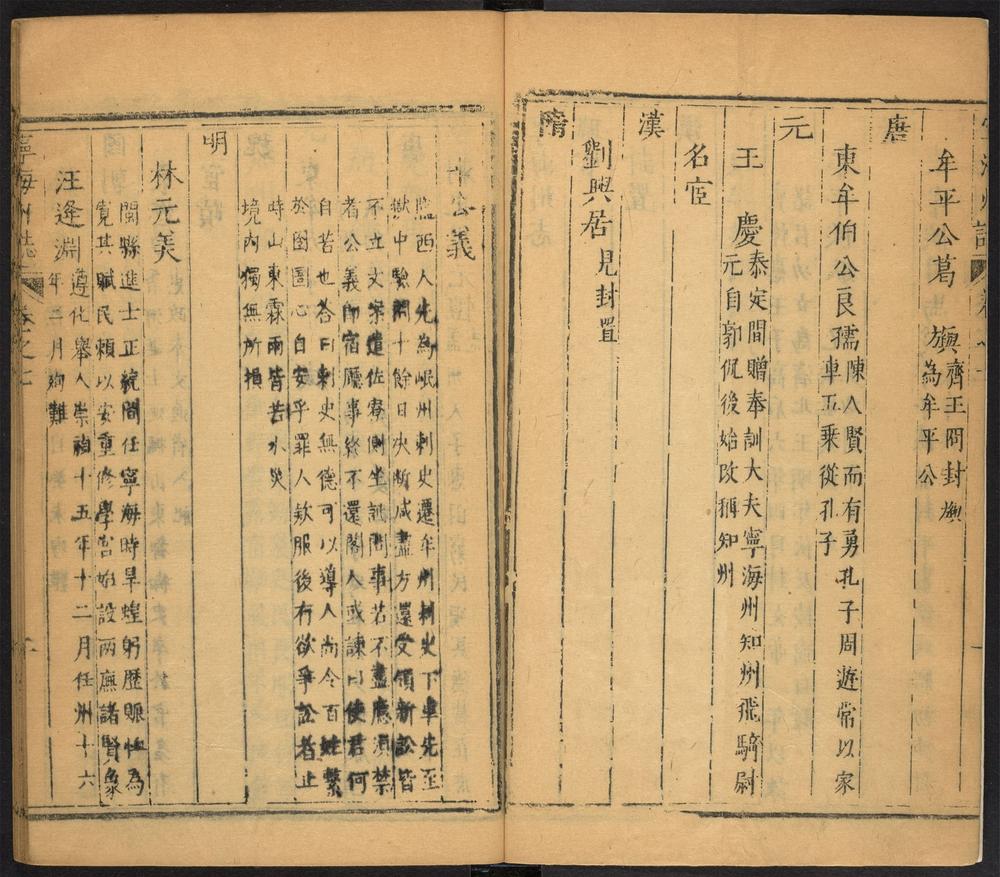 牟平公葛旟 齊王冏封旟
為牟平公
唐
東牟伯公良孺 陳人賢而有勇孔子周遊常以家
車五乘從孔子
元
王 慶 泰定間贈奉訓大夫寧海州知州飛騎尉
元自郭侃後始改稱知州
名宦
漢
劉興居 見封置
隋
辛公義
隴西人先為岷州刺史遷牟州刺史下車先至
獄中驗問十餘日决斷咸盡方還受領新訟皆
不立文案遣佐寮側坐訊問事若不盡應須禁
者公義即宿廳事終不還閣人或諫曰使君何
自苦也荅曰刺史無德可以導人尚令百姓繫
於囹圄心自安乎罪人欵服後有欲爭訟者止
時山東霖雨皆苦水災
境內獨無所損
明
林元美
閩縣進士正統間任寧海時旱蝗躬歷賑恤為
寬其賦民賴以安重修學宮始設兩廡諸賢象
汪逢淵 遵化舉人崇禎十五年十二月任州十六
年二月殉難
寧海州誌 卷之七